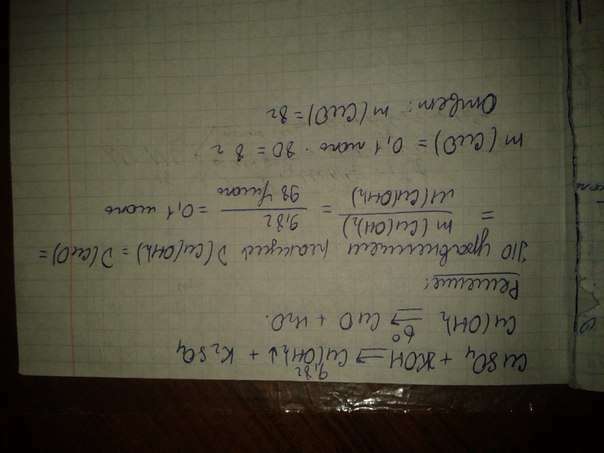 CuSO₄ + KOH → Cu(OH)₂↓ + K₂SO₄
9,8г
Cu(OH)₂ t° → CuO + H₂O.
Решение:
По уравнениям реакций ν(Cu(OH)₂) = ν(CuO) =
= m(Cu(OH)₂) / M(Cu(OH)₂) = 9,8г / 98 г/моль = 0,1 моль
m(CuO) = 0,1 моль · 80 = 8г
Ответ: m(CuO) = 8г